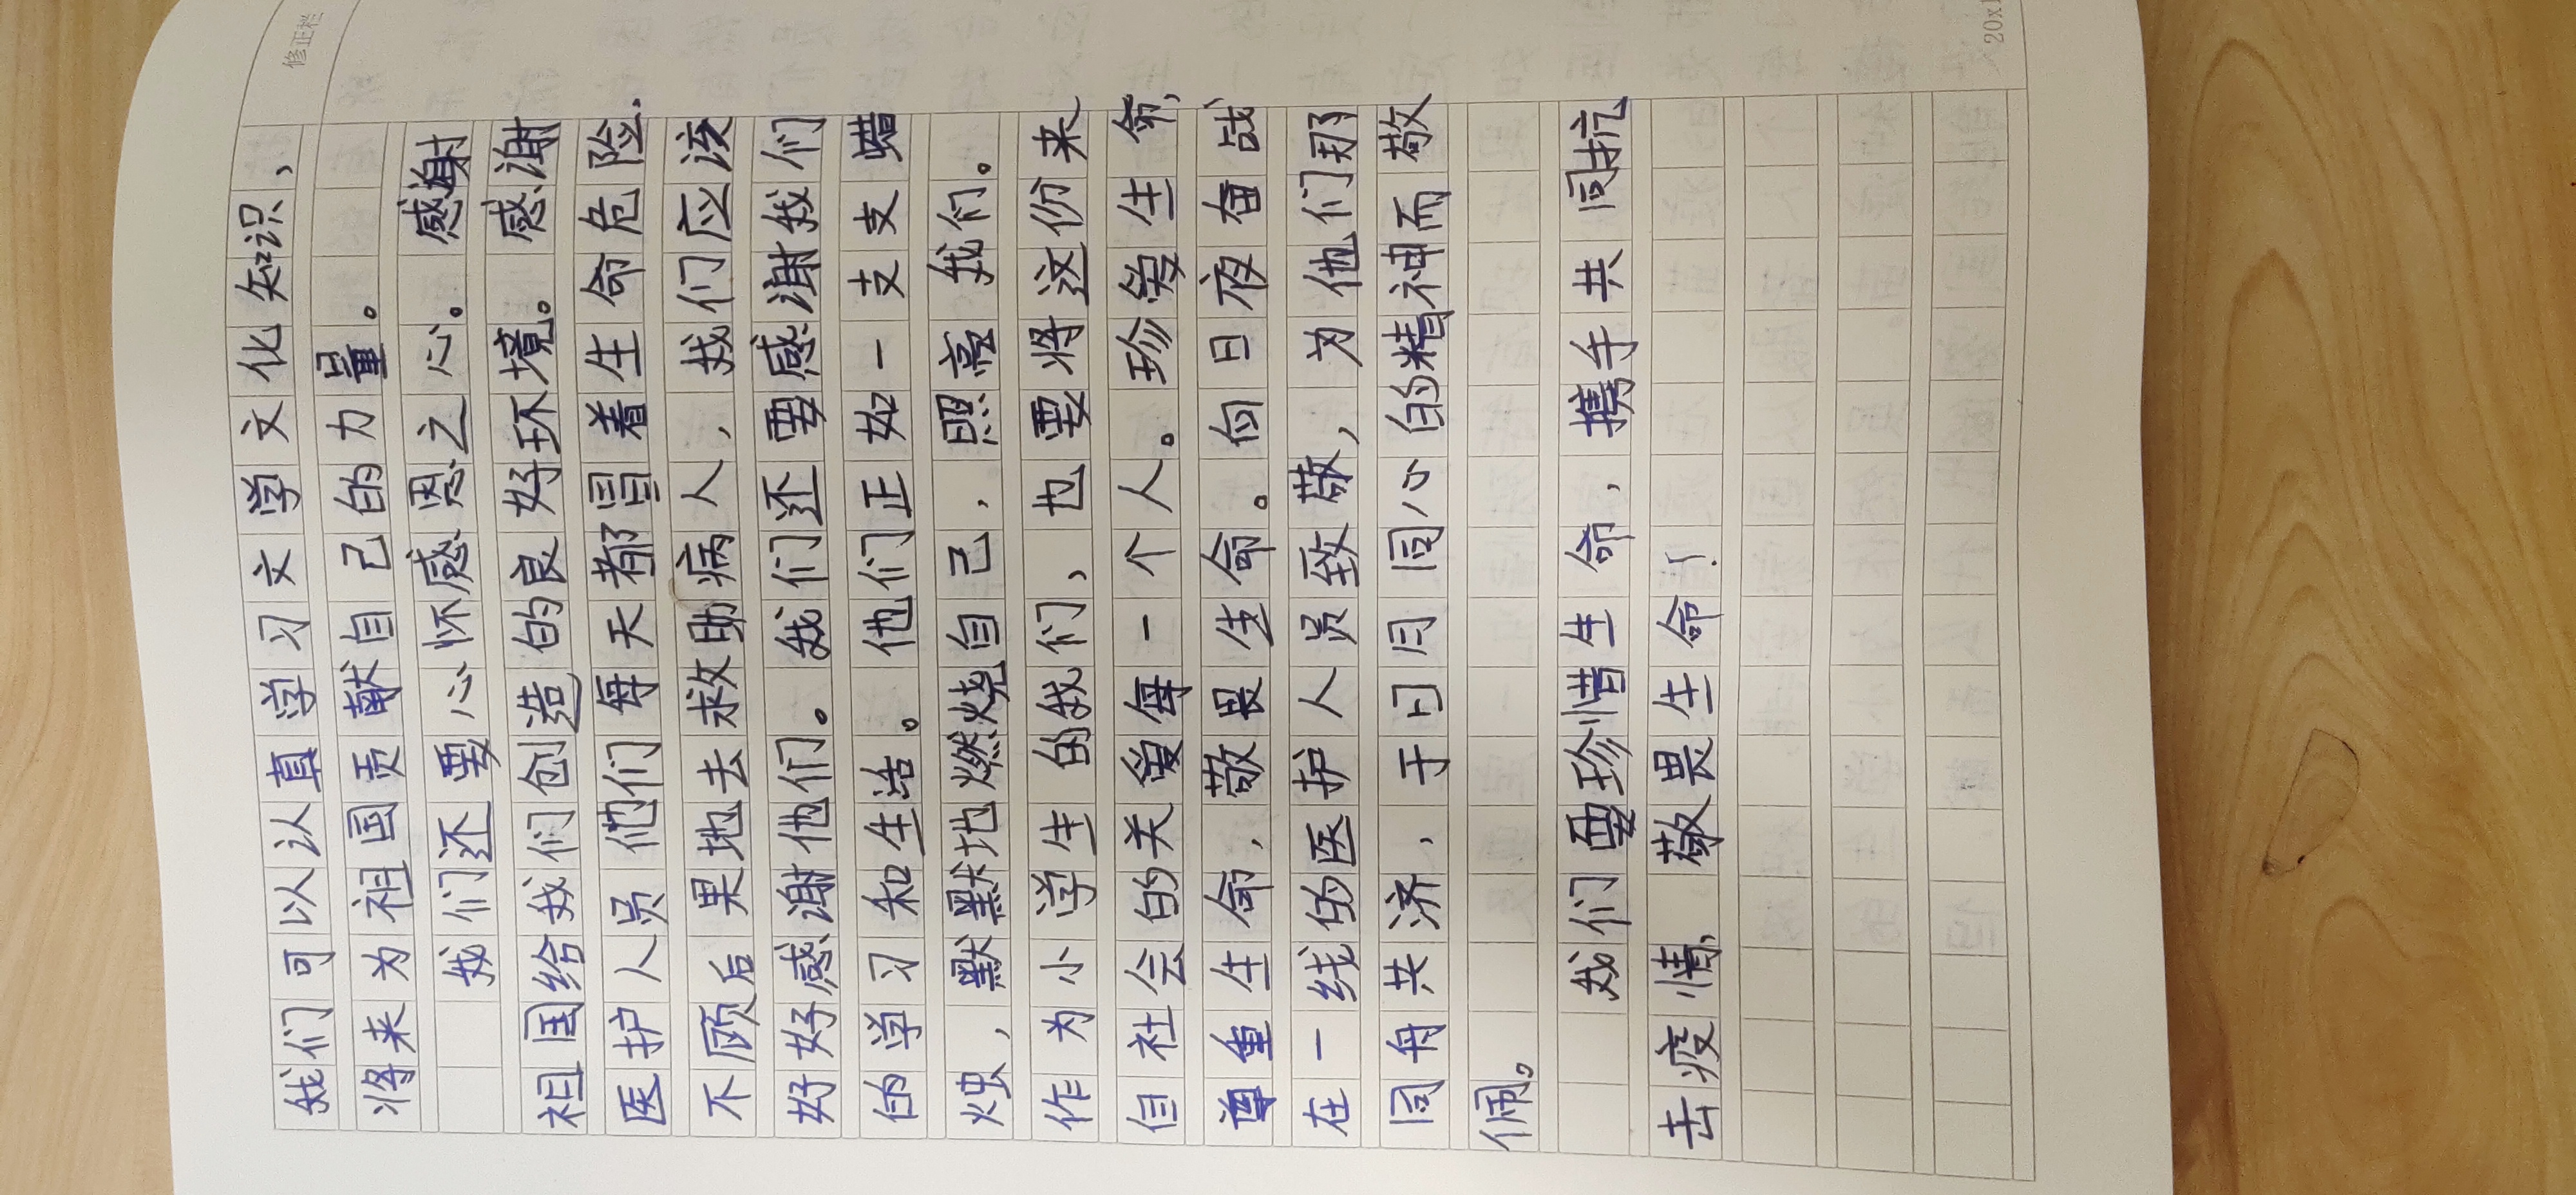 修正栏
我们可以认真学习文学文化知识、
将来为祖国贡献自己的力量。
我们还要心怀感恩之心。感谢
祖国给我们创造的良好环境。感谢
医护人员他们每天都冒着生命危险.
不顾后果地去救助病人，我们应该
好好感谢他们。我们还要感谢我们
的学习和生活。他们正如一支支蜡
烛，默默地燃烧自己，照亮我们。
作为小学生的我们，也要将这份来
自社会的关爱每一个人。珍爱生命，
尊重生命，敬畏生命。向日夜奋战
在一线的医护人员致敬，为他们那
同舟共济，于日月同心的精神而敬
佩。
我们要珍惜生命，携手共同抗
击疫情，敬畏生命！